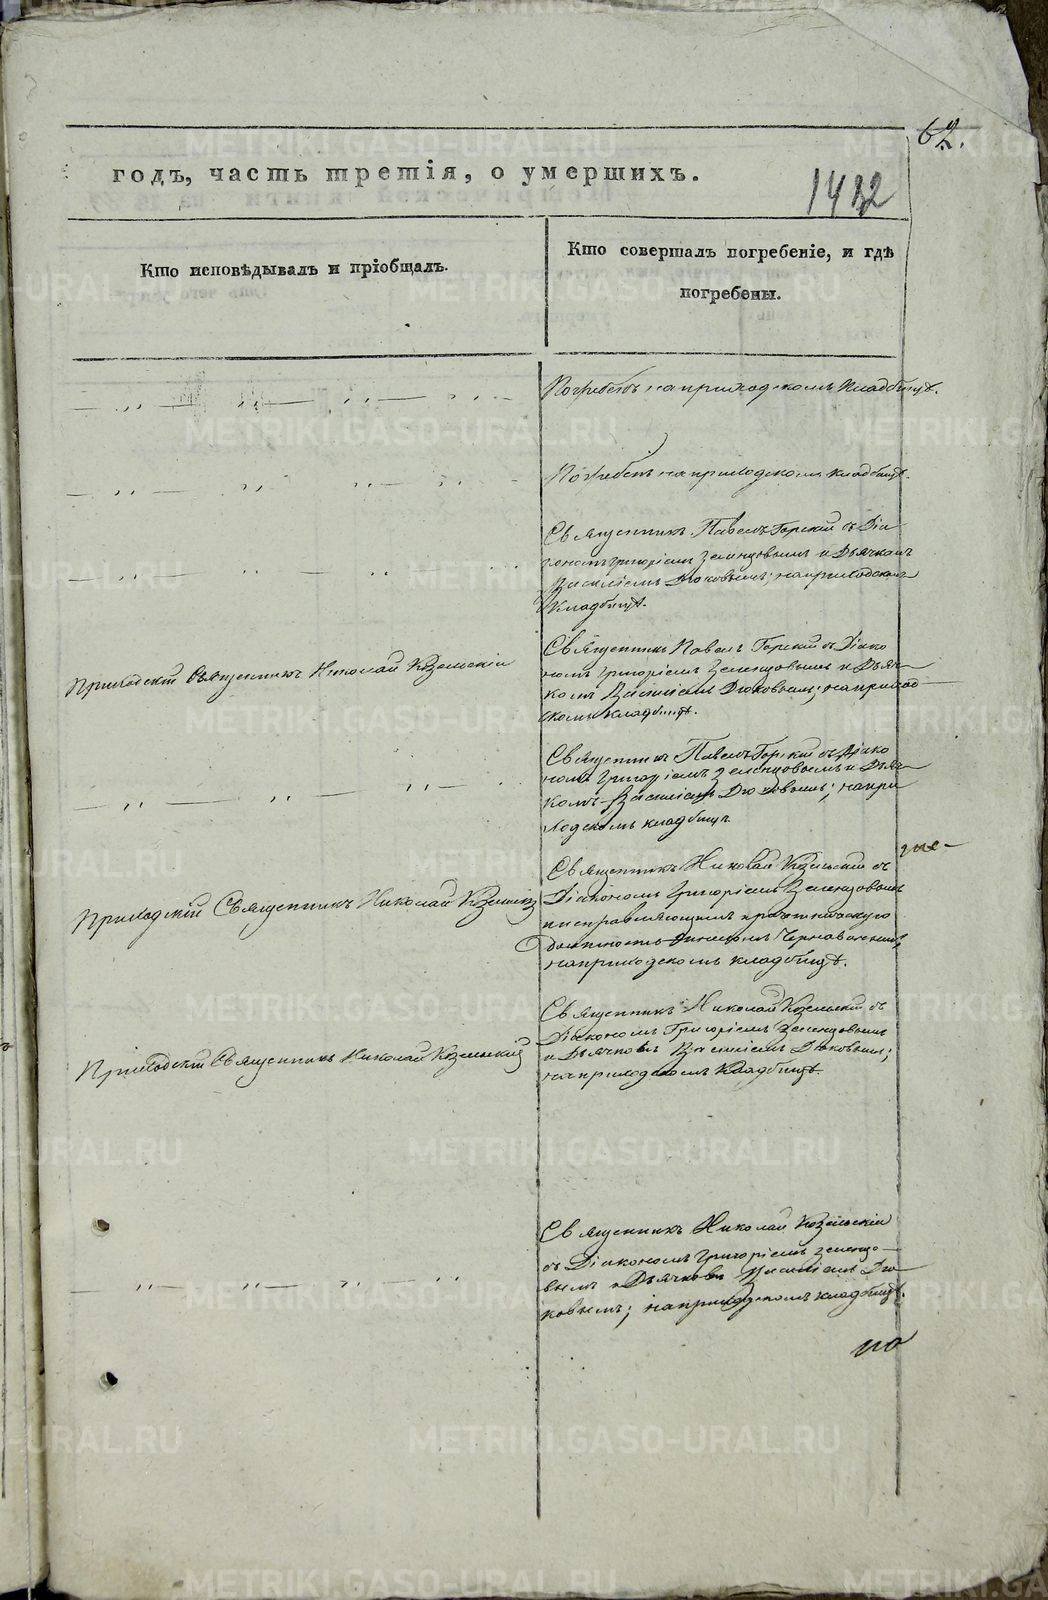 62.
годъ, часть третія, о умершихъ.
1432
Кто исповѣдывалъ и пріобщалъ.
Кто совершалъ погребеніе, и гдѣ
погребены.
Погребенъ на приходскомъ кладбищѣ.
Погребенъ на приходскомъ кладбищѣ.
Священникъ Павелъ Горскій съ Діа
кономъ Григоріемъ Зеленцовымъ и Дьячкомъ
Василіемъ Дюковымъ; на приходскомъ
кладбищѣ.
Приходскій Священникъ Николай Козельскій
Священникъ Павелъ Горскій съ Діако
номъ Григоріемъ Зеленцовымъ и Дьяч-
комъ Василіемъ Дюковымъ; на приход-
скомъ кладбищѣ.
Священникъ Павелъ Горскій съ Діако
номъ Григоріемъ Зеленцовымъ и Дьяч-
комъ Василіемъ Дюковымъ; на при
ходскомъ кладбищѣ
Приходскій Священникъ Николай Козельскій
Священникъ Николай Козельскій съ
Діакономъ Григоріемъ Зеленцовымъ
и исправляющимъ причетническую
должность
на приходскомъ кладбищѣ.
Приходскій Священникъ Николай Козельскій
Священникъ Николай Козельскій съ
Діакономъ Григоріемъ Зеленцовымъ
и Дьячкомъ Василіемъ Дюковымъ;
на приходскомъ кладбищѣ.
Священникъ Николай Козельскій
съ Діакономъ Григоріемъ Зеленцо-
вымъ и Дьячкомъ Василіемъ Дю
ковымъ; на приходскомъ кладбищѣ.
по
METRIKI.GASO-URAL.RU